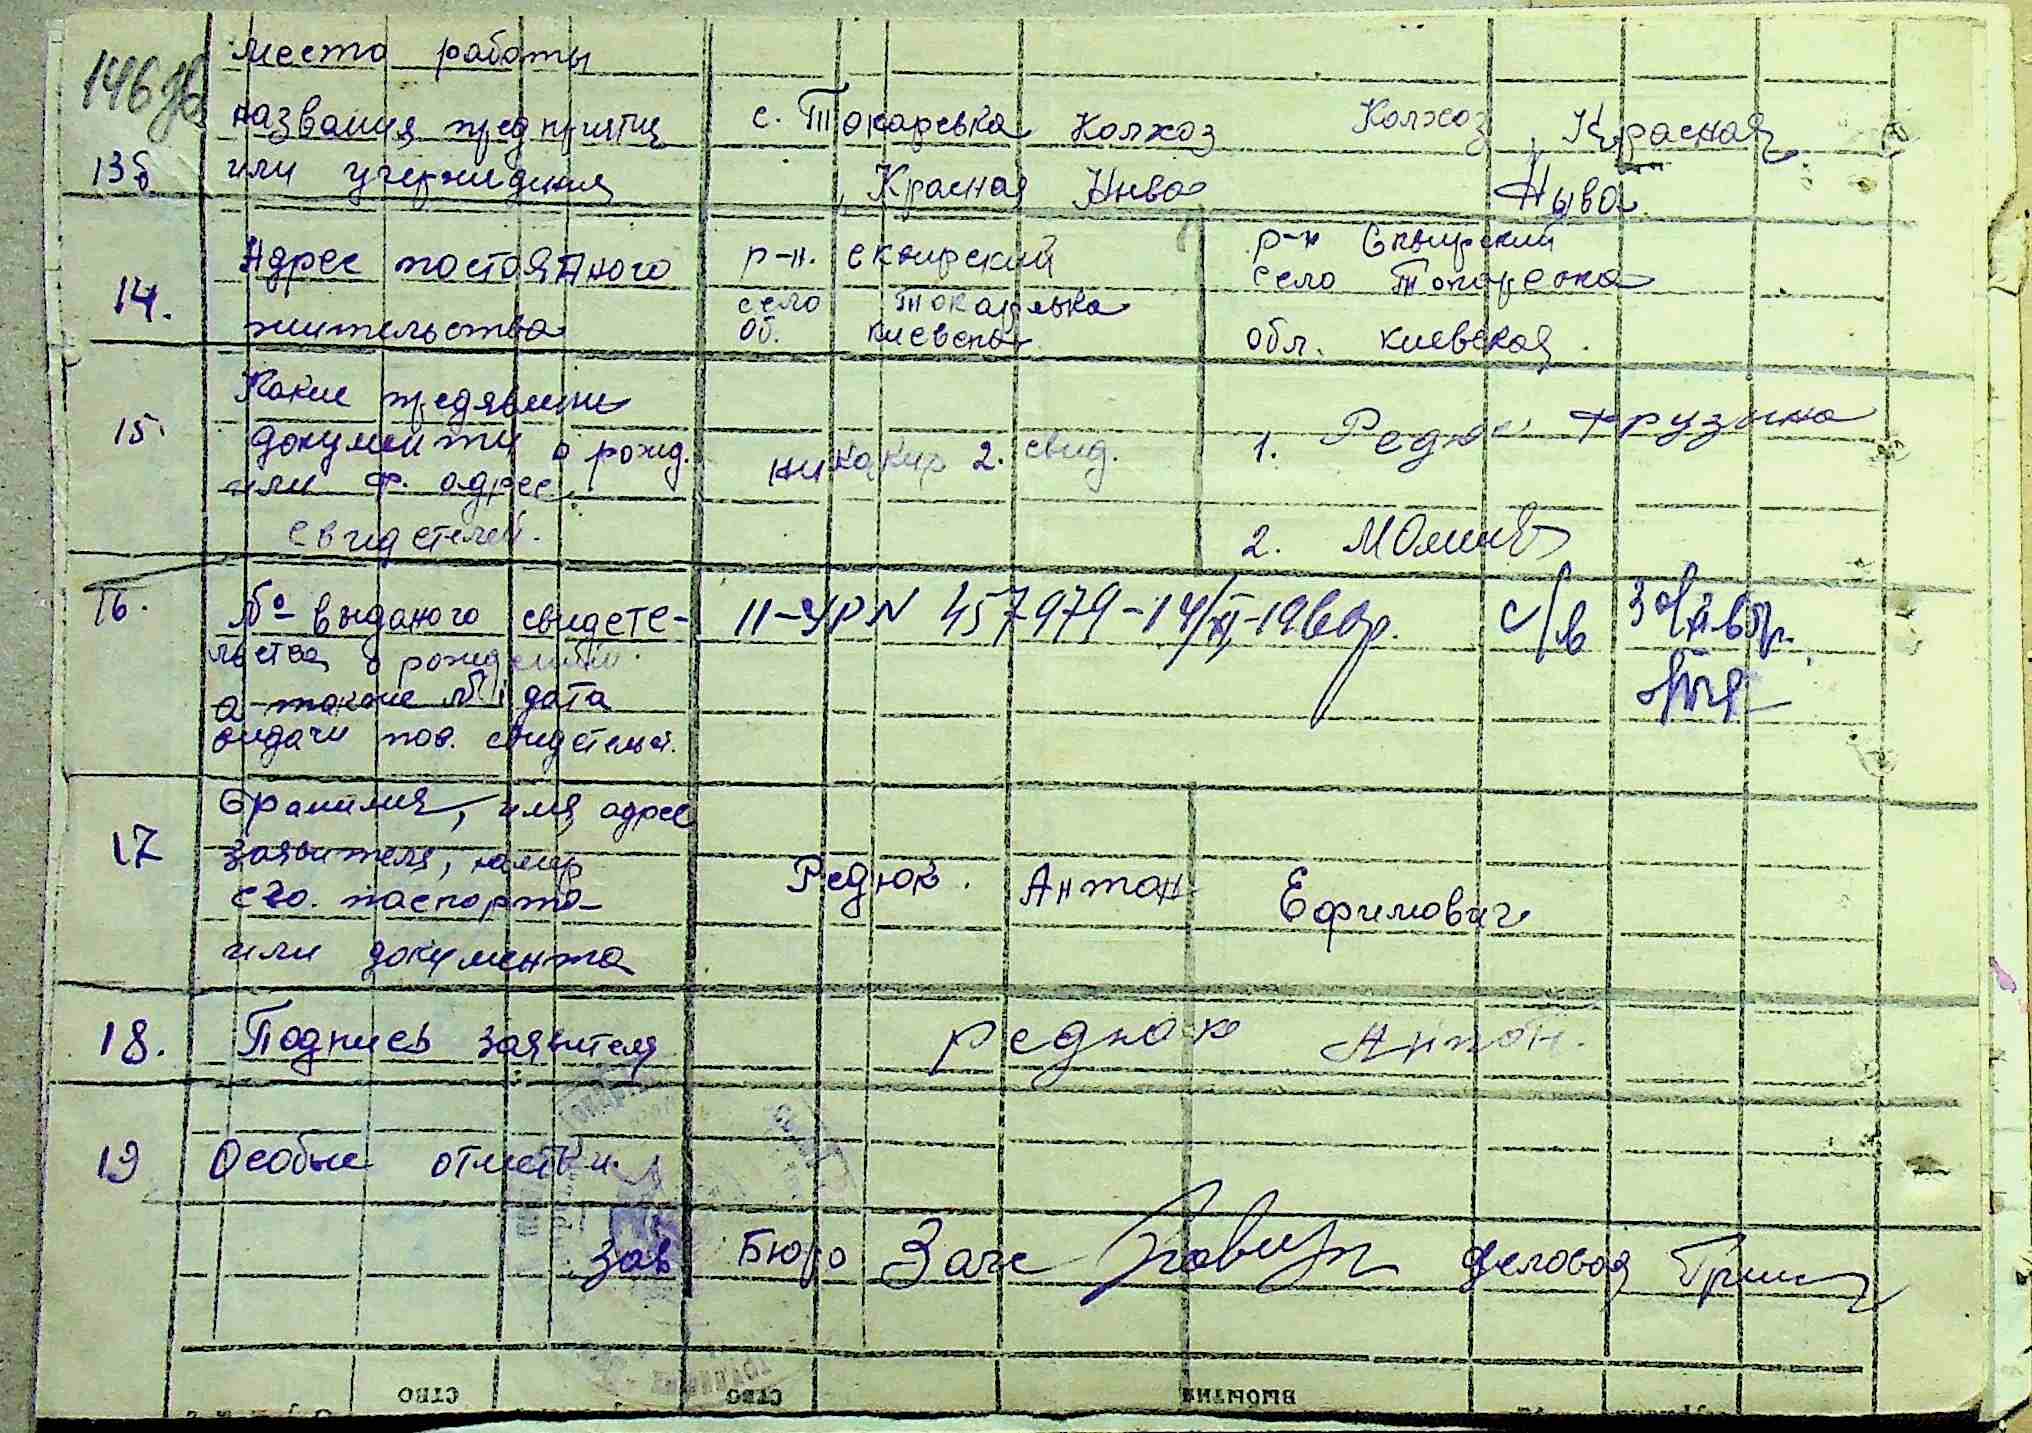 146 зв
место работы
названия предприятия
13б или учерждения
с. Токарсвка колхоз
Красная Нива
Колхоз Красная
Ныва
14. Адрес постоянного
жительства
р-н. сквирский
село Токаръвка
Об. киевская
р-н Сквирский
село Токаревка
обл. киевская.
15. Какие предявлены
документи о рожд.
или ф. адрес
свидетелей.
никаких 2. свид.
1. Редюк Фрузина
2.
16. № выданого свидете-
льства о рождении
а также № и дата
видачи пов. свидетельст.
II-УР N 457979-14/XI-1960р.
17 Фамилия, имя адрес
заявителя, намир
его. паспорта
или документа
Редюк. Антон Ефимович
18. Подпись заявителя
редюк Антон.
19 Особые отметки.
Зав Бюро Загс Деловод
ство ство